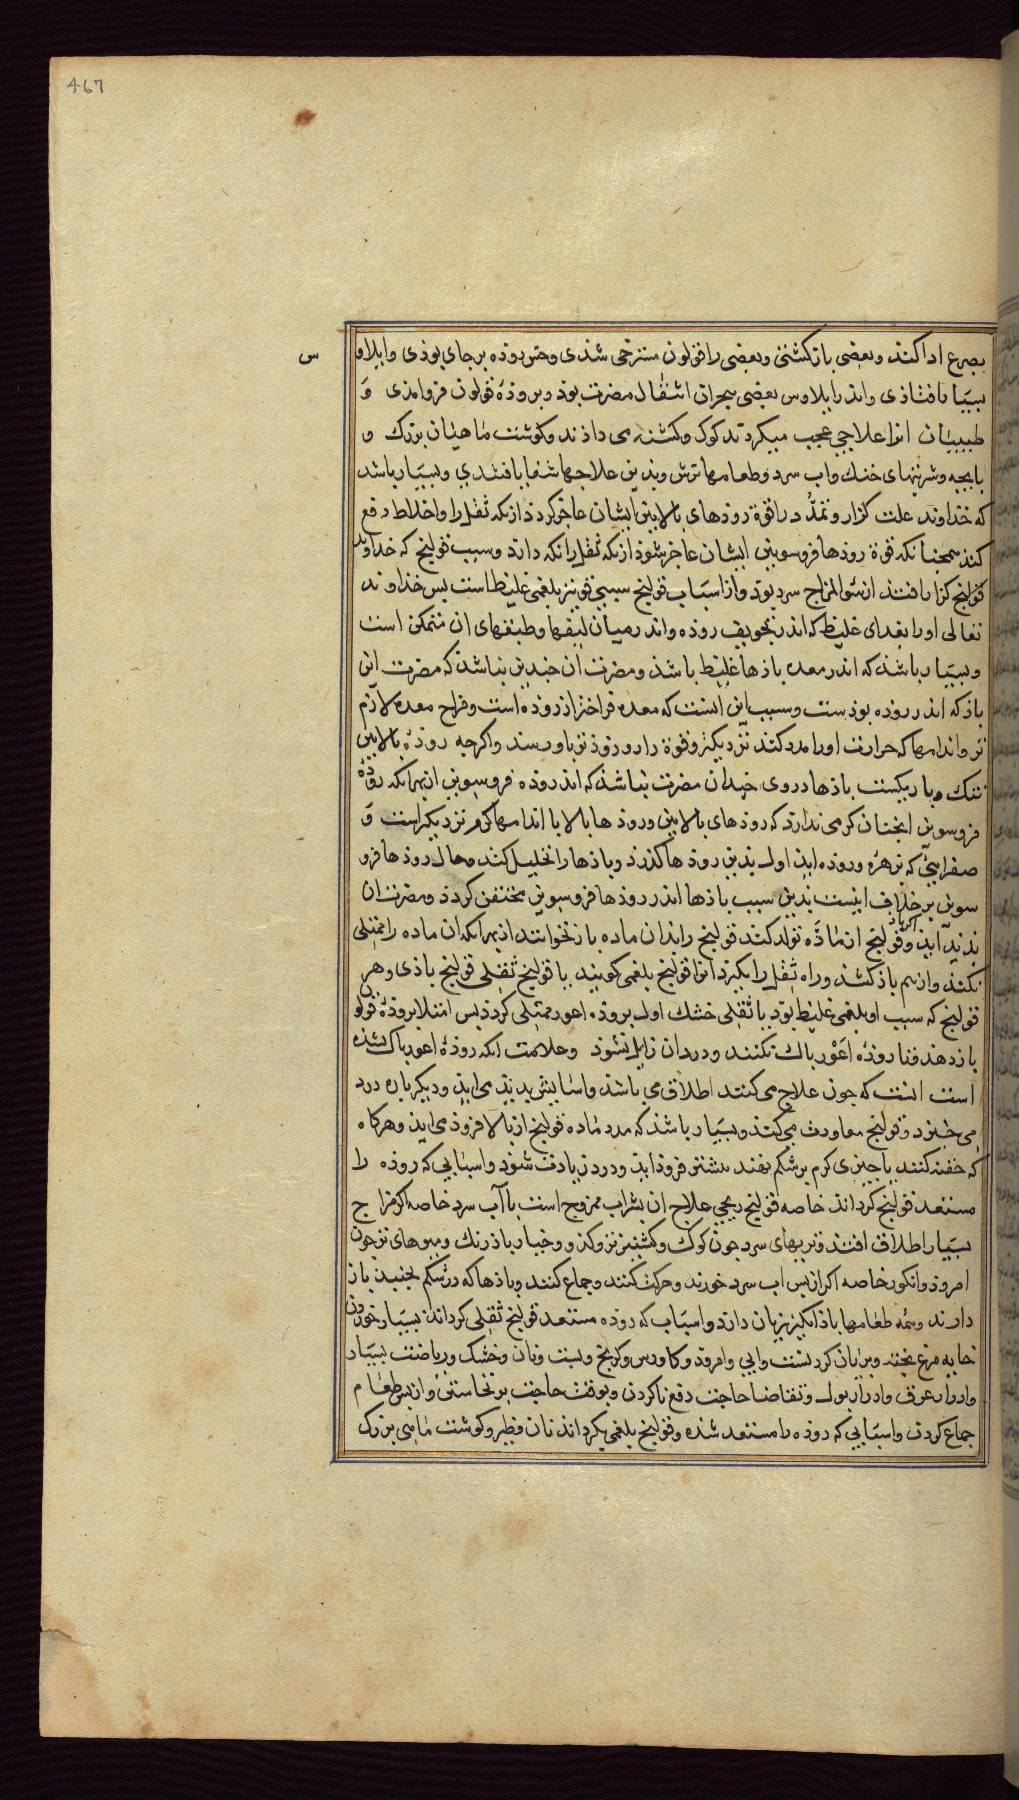 467
بصرع اداکند وبعضی بازکشتی وبعضی را قولون مسترخی شدی وحس بوده برجای بوذی وایلاو
س
بسیار افتاذی واندر ایلاوس بعضی ببحران انتقال مضرت بود وبروذهٔ قولون فروامذی وَ
طبیبیان انرا علاجی عجب میکردند کوک وکشنه می داذند وکوشت ماهیان بزرک و
پایچه وشربتهای خنک واب سرد وطعامها ترش وبدین علاجها شفا یافتندی وبسیار باشد
که خذاوند علت کزاز وتمدُّد را قوة روذهای بالایین ایشان عاجز کردذ ازنکه ثفل را واخلاط دفع
کند همچنانکه قوة روذها فروسویین ایشان عاجز شوذ ازنکه ثفل را نکه دارد وسبب قولنج که خداوند
قولنج کزاز افتد از سؤالمزاج سرد بوذ واز اسباب قولنج سببی قوی نیز بلغمی غلیظ است بس خذاوند
تعالی اورا بغدای غلیظ که اندر تجویف روذه واندر میان لیفها وطبقهای ان متمکن است
وبسیار باشذ که اندر معده باذها غلیظ باشذ ومضرت ان چندین نباشذ که مضرت این
باذ که اندر روذه بوذست وسبب این انست که معده فراختر از روذه است ومزاج معده کرم
تر واندامها که حرارت اورا مدد کند نزدیکتر وقوة دارو زوذتر باو رسد واکرچه روذهٔ بالایین
تنک وباریکست باذها در وی چندان مضرت نباشذ که اندر روذه فروسویین ازبهرانکه روذهٔ
فروسوین ایچنان کرمی ندارد که روذهای بالایین وروذها بالا با اندامها کرم نزدیکتر است وَ
صفرایی که بزهره وروذه اید اول بدین روذها کذرذ وباذها را تحلیل کند وحال روذها فرو
سوین برخلاف اینست بدین سبب باذها اندر روذها فروسوین محتقن کردد ومضرت ان
بدید آید واکرباد وقولنج از مادّه تولد کند قولنج را ازان ماده باز نخوانند ازبهرانکه ان ماده را ممتلی
نکند وازهم باز کشد وراه ثفل را بکیرد انرا قولنج بلغمی کویند یا قولنج ثفلی قولنج باذی وهر
قولنج که سبب او بلغمی غلیظ بوذ یا ثفلی خشک اول بروذه اعور ممتلی کردد بس امتلا بروذهٔ قولو
باز دهد فتا روذه اعوَر باک نکنند ودردان زایل نشوذ وعلامت انکه روذهٔ اعور باک شده
است انست که چون علاج می کنند اطلاق می باشذ واسایش بدید می ایذ ودیکر باره درد
می خیزد وقولنج معاودت می کند وبسیار باشذ که مدد ماده قولنج از بالا فروذ می ایذ وهرکاه
که حقنه کنند یا چیزی کرم برشکم نهند بیشتر فروذ اید ودرد زیادت شوذ واسبابی که روذه را
مستعد قولنج کرداند خاصه قولنج ریحی علاج ان شراب ممزوج است با آب سرد خاصه اکر مزاج
بسیار اطلاق افتد وتریهای سرد چون کوک وکشنیز تر وکدو وخیار باذرنک ومیوهای تر چون
امروذ وانکور خاصه اکر ازپس اب سرد خورند وحرکت کنند وجماع کنند وباذها که درشکم بجنبد باز
دارند وهمه طعامها باذانکیز زیان دارد واسباب که روذه مستعد قولنج ثفلی کرداند بسیار خوردن
خایه مرغ پخته وبریان کرد بست وابی وامرود وکاورس وکرنج وبست ونان وخشک وریاضت بسیار
وادرار عرق وادرار بول وتقاضا حاجت دفع ناکردن وبوقت حاجت برنخاستن وازپس طعام
جماع کردن واسبابی که روذه را مستعد شده وقولنج بلغمی یکرداند نان فطیر وکوشت ماهی بزرک